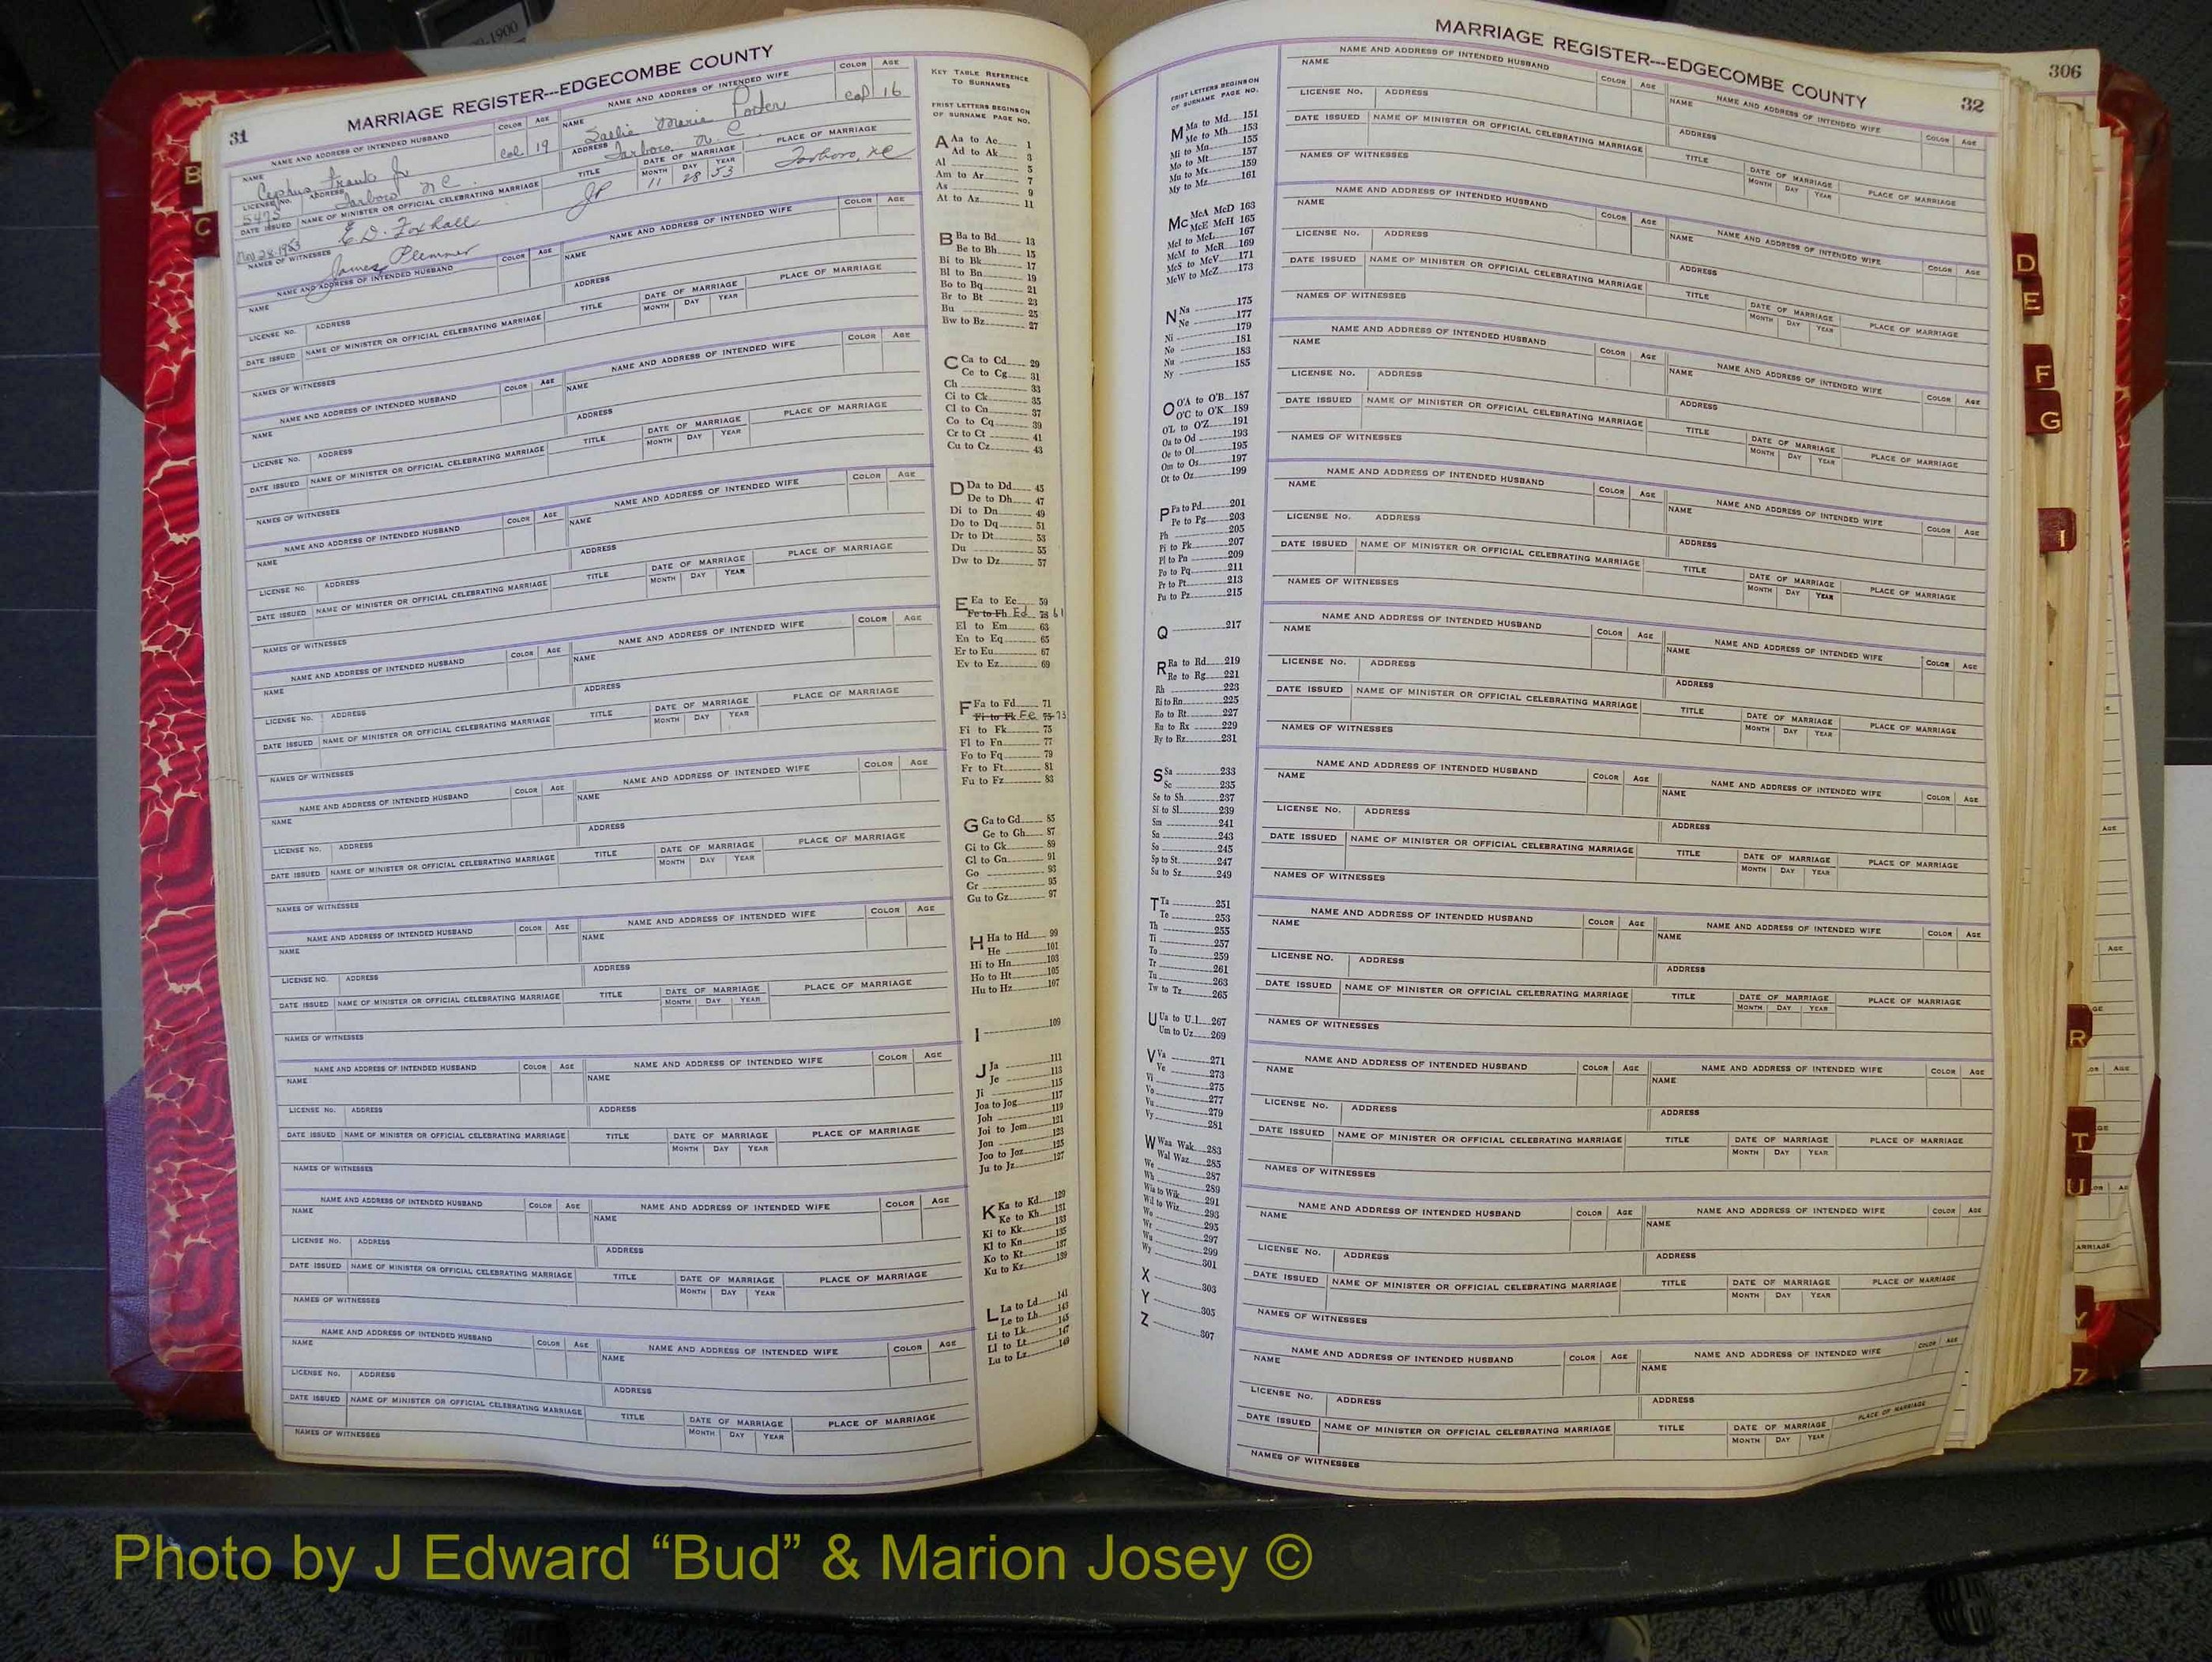 -1900
31
MARRIAGE REGISTER---EDGECOMBE COUNTY
NAME AND ADDRESS OF INTENDED HUSBAND COLOR AGE NAME AND ADDRESS OF INTENDED WIFE COLOR AGE
NAME Cephus, Frank Jr Col 19 NAME Sallie Maria Porter Col 16
LICENSE NO. 5475 ADDRESS Tarboro N C ADDRESS Tarboro N C
DATE ISSUED NAME OF MINISTER OR OFFICIAL CELEBRATING MARRIAGE TITLE DATE OF MARRIAGE MONTH DAY YEAR PLACE OF MARRIAGE
Nov 28-1953 E.D. Foxhall JP 11 28 53 Tarboro, NC
NAMES OF WITNESSES James Plemmer
NAME AND ADDRESS OF INTENDED HUSBAND COLOR AGE NAME AND ADDRESS OF INTENDED WIFE COLOR AGE
NAME NAME
LICENSE NO. ADDRESS ADDRESS
DATE ISSUED NAME OF MINISTER OR OFFICIAL CELEBRATING MARRIAGE TITLE DATE OF MARRIAGE MONTH DAY YEAR PLACE OF MARRIAGE
NAMES OF WITNESSES
KEY TABLE REFERENCE
TO SURNAMES
FRIST LETTERS BEGINS ON
OF SURNAME PAGE NO.
A Aa to Ac 1
Ad to Ak 3
Al 5
Am to Ar 7
As 9
At to Az 11
B Ba to Bd 13
Be to Bh 15
Bi to Bk 17
Bl to Bn 19
Bo to Bq 21
Br to Bt 23
Bu 25
Bw to Bz 27
C Ca to Cd 29
Ce to Cg 31
Ch 33
Ci to Ck 35
Cl to Cn 37
Co to Cq 39
Cr to Ct 41
Cu to Cz 43
D Da to Dd 45
De to Dh 47
Di to Dn 49
Do to Dq 51
Dr to Dt 53
Du 55
Dw to Dz 57
E Ea to Ec 59
Fe to Fh Ed 73 61
El to Em 63
En to Eq 65
Er to Eu 67
Ev to Ez 69
F Fa to Fd 71
Fi to Fk Fe 75 73
Fi to Fk 75
Fl to Fn 77
Fo to Fq 79
Fr to Ft 81
Fu to Fz 83
G Ga to Gd 85
Ge to Gh 87
Gi to Gk 89
Gl to Gn 91
Go 93
Gr 95
Gu to Gz 97
H Ha to Hd 99
He 101
Hi to Hn 103
Ho to Ht 105
Hu to Hz 107
I 109
J Ja 111
Je 113
Ji 115
Joa to Jog 117
Joh 119
Joi to Jom 121
Jon 123
Joo to Joz 125
Ju to Jz 127
K Ka to Kd 129
Ke to Kh 131
Ki to Kk 133
Kl to Kn 135
Ko to Kt 137
Ku to Kz 139
L La to Ld 141
Le to Lh 143
Li to Lk 145
Ll to Lt 147
Lu to Lz 149
FRIST LETTERS BEGINS ON
OF SURNAME PAGE NO.
M Ma to Md 151
Me to Mh 153
Mi to Mn 155
Mo to Mt 157
Mu to Mx 159
My to Mz 161
Mc McA McD 163
McE McH 165
McI to McL 167
McM to McR 169
McS to McV 171
McW to McZ 173
N Na 175
Ne 177
Ni 179
No 181
Nu 183
Ny 185
O O'A to O'B 187
O'C to O'K 189
O'L to O'Z 191
Oa to Od 193
Oe to Ol 195
Om to Os 197
Ot to Oz 199
P Pa to Pd 201
Pe to Pg 203
Ph 205
Pi to Pk 207
Pl to Pn 209
Po to Pq 211
Pr to Pt 213
Pu to Pz 215
Q 217
R Ra to Rd 219
Re to Rg 221
Rh 223
Ri to Rn 225
Ro to Rt 227
Ru to Rx 229
Ry to Rz 231
S Sa 233
Sc 235
Se to Sh 237
Si to Sl 239
Sm 241
Sn 243
So 245
Sp to St 247
Su to Sz 249
T Ta 251
Te 253
Th 255
Ti 257
To 259
Tr 261
Tu 263
Tw to Tz 265
U Ua to Ul 267
Um to Uz 269
V Va 271
Ve 273
Vi 275
Vo 277
Vu 279
Vy 281
W Waa Wak 283
Wal Waz 285
We 287
Wh 289
Wia to Wik 291
Wil to Wiz 293
Wo 295
Wr 297
Wu 299
Wy 301
X 303
Y 305
Z 307
MARRIAGE REGISTER---EDGECOMBE COUNTY
32
306
NAME AND ADDRESS OF INTENDED HUSBAND COLOR AGE NAME AND ADDRESS OF INTENDED WIFE COLOR AGE
NAME NAME
LICENSE NO. ADDRESS ADDRESS
DATE ISSUED NAME OF MINISTER OR OFFICIAL CELEBRATING MARRIAGE TITLE DATE OF MARRIAGE MONTH DAY YEAR PLACE OF MARRIAGE
NAMES OF WITNESSES
B
C
D
E
F
G
I
R
T
U
Y
Z
Photo by J Edward “Bud” & Marion Josey ©